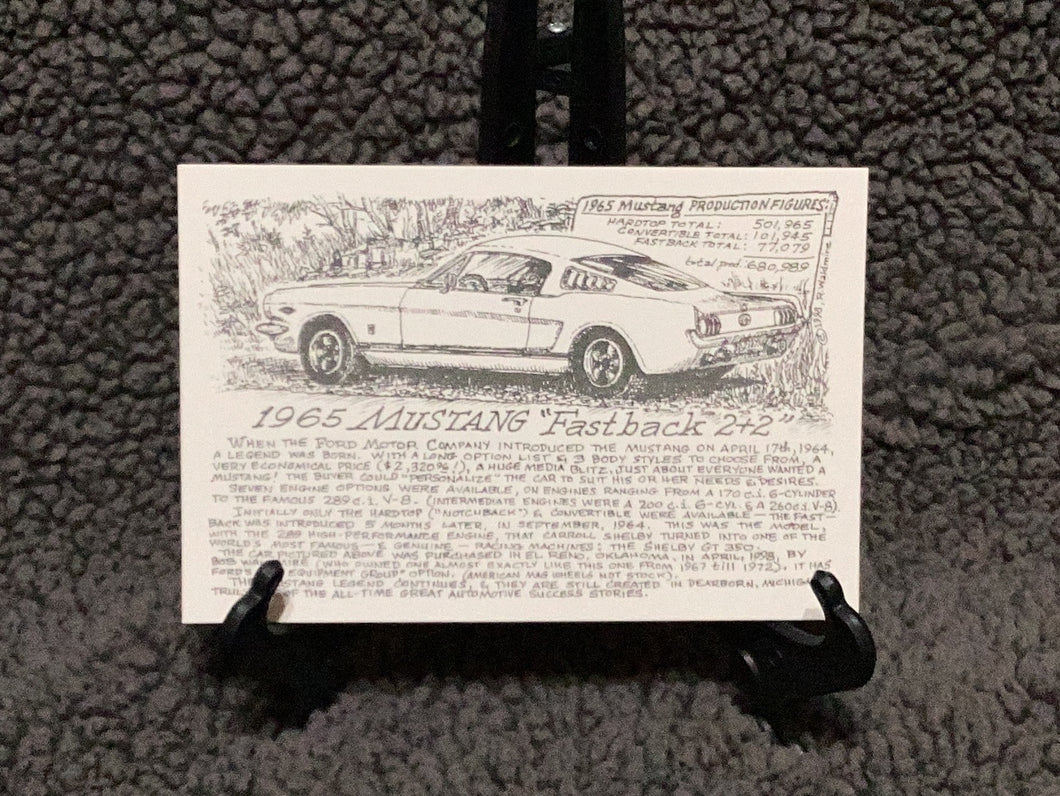 1965 Mustang PRODUCTION FIGURES:
HARDTOP TOTAL: 501,965
CONVERTIBLE TOTAL: 101,945
FASTBACK TOTAL: 77,079
total prod: 680,989
1965 MUSTANG "Fastback 2+2"
WHEN THE FORD MOTOR COMPANY INTRODUCED THE MUSTANG ON APRIL 17th, 1964,
A LEGEND WAS BORN. WITH A LONG OPTION LIST & 3 BODY STYLES TO CHOOSE FROM, A
VERY ECONOMICAL PRICE ($2,320 !), A HUGE MEDIA BLITZ, JUST ABOUT EVERYONE WANTED A
MUSTANG! THE BUYER COULD "PERSONALIZE" THE CAR TO SUIT HIS OR HER NEEDS & DESIRES.
SEVEN ENGINE OPTIONS WERE AVAILABLE, ON ENGINES RANGING FROM A 170 c.i. 6-CYLINDER
TO THE FAMOUS 289 c.i. V-8. (INTERMEDIATE ENGINES WERE A 200 c.i. 6-CYL. & A 260 c.i. V-8).
INITIALLY ONLY THE HARDTOP ("NOTCHBACK") & CONVERTIBLE WERE AVAILABLE — THE FAST-
BACK WAS INTRODUCED 5 MONTHS LATER, IN SEPTEMBER, 1964. THIS WAS THE MODEL,
WITH THE 289 HIGH-PERFORMANCE ENGINE, THAT CARROLL SHELBY TURNED INTO ONE OF THE
WORLD'S MOST FAMOUS — & GENUINE — RACING MACHINES: THE SHELBY GT 350.
THE CAR PICTURED ABOVE WAS PURCHASED IN EL RENO, OKLAHOMA, IN APRIL, 1998, BY
BOB (WHO OWNED ONE ALMOST EXACTLY LIKE THIS ONE FROM 1967 till 1972). IT HAS
FORD'S EQUIPMENT GROUP" OPTION. (AMERICAN MAG WHEELS NOT STOCK).
THE MUSTANG LEGEND CONTINUES, & THEY ARE STILL CREATED IN DEARBORN,
OF THE ALL-TIME GREAT AUTOMOTIVE SUCCESS STORIES.